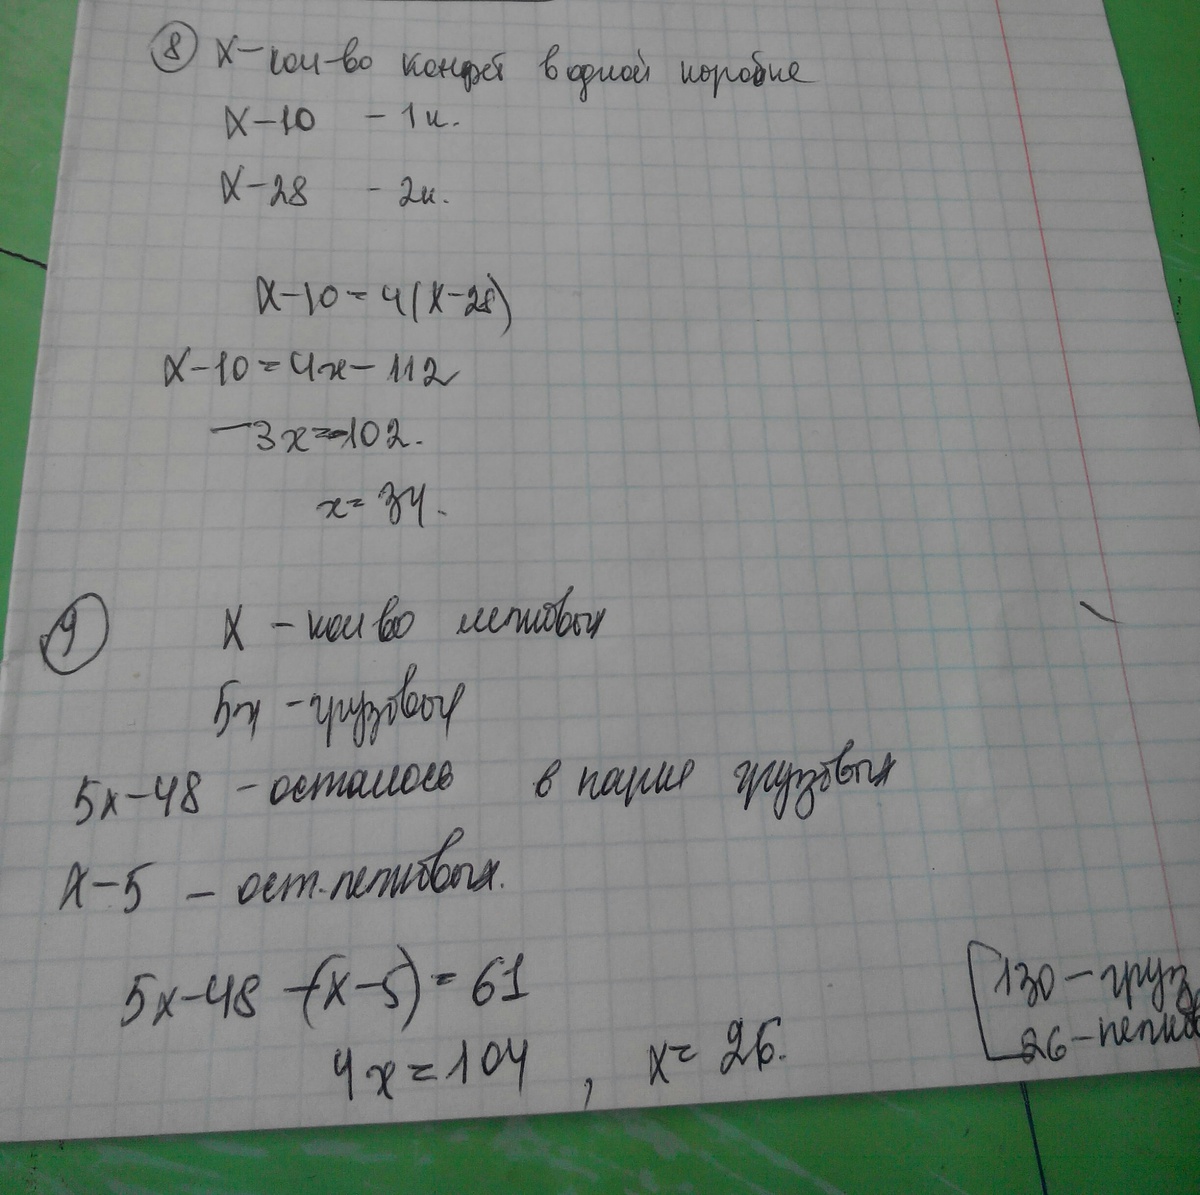 8 х-кол-во конфет в одной коробке
х-10 - 1к.
х-28 - 2к.
х-10=4(х-28)
х-10=4х-112
-3х=-102.
х=34.
9 х - кол во легковых
5х - грузовых
5х-48 - осталось в парке грузовых
х-5 - ост. легковых.
5х-48-(х-5)=61
4х=104, х=26.
130-груз
26-легков